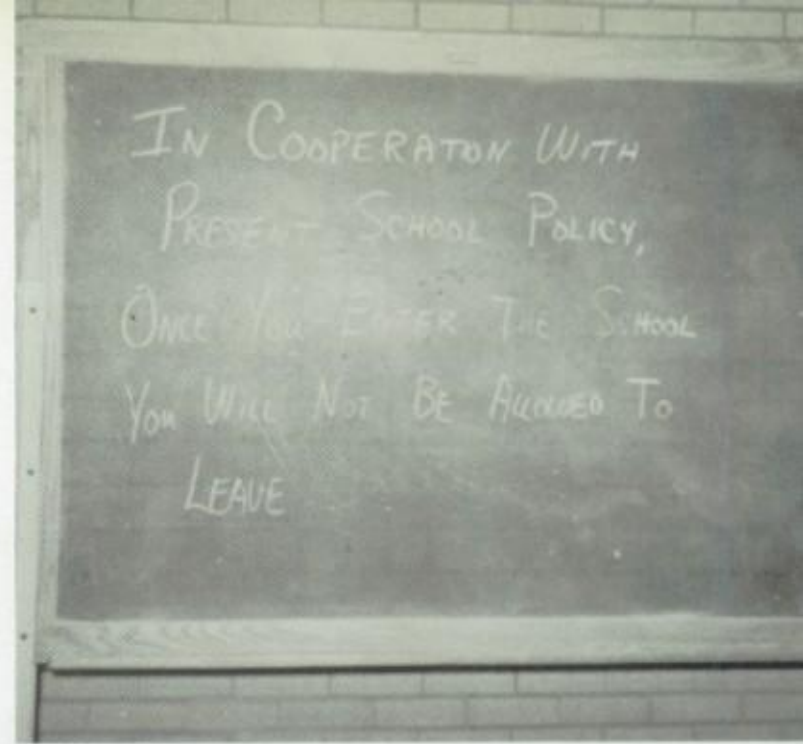 In Cooperaton With
Present School Policy,
Once You Enter The School
You Will Not Be Allowed To
Leave